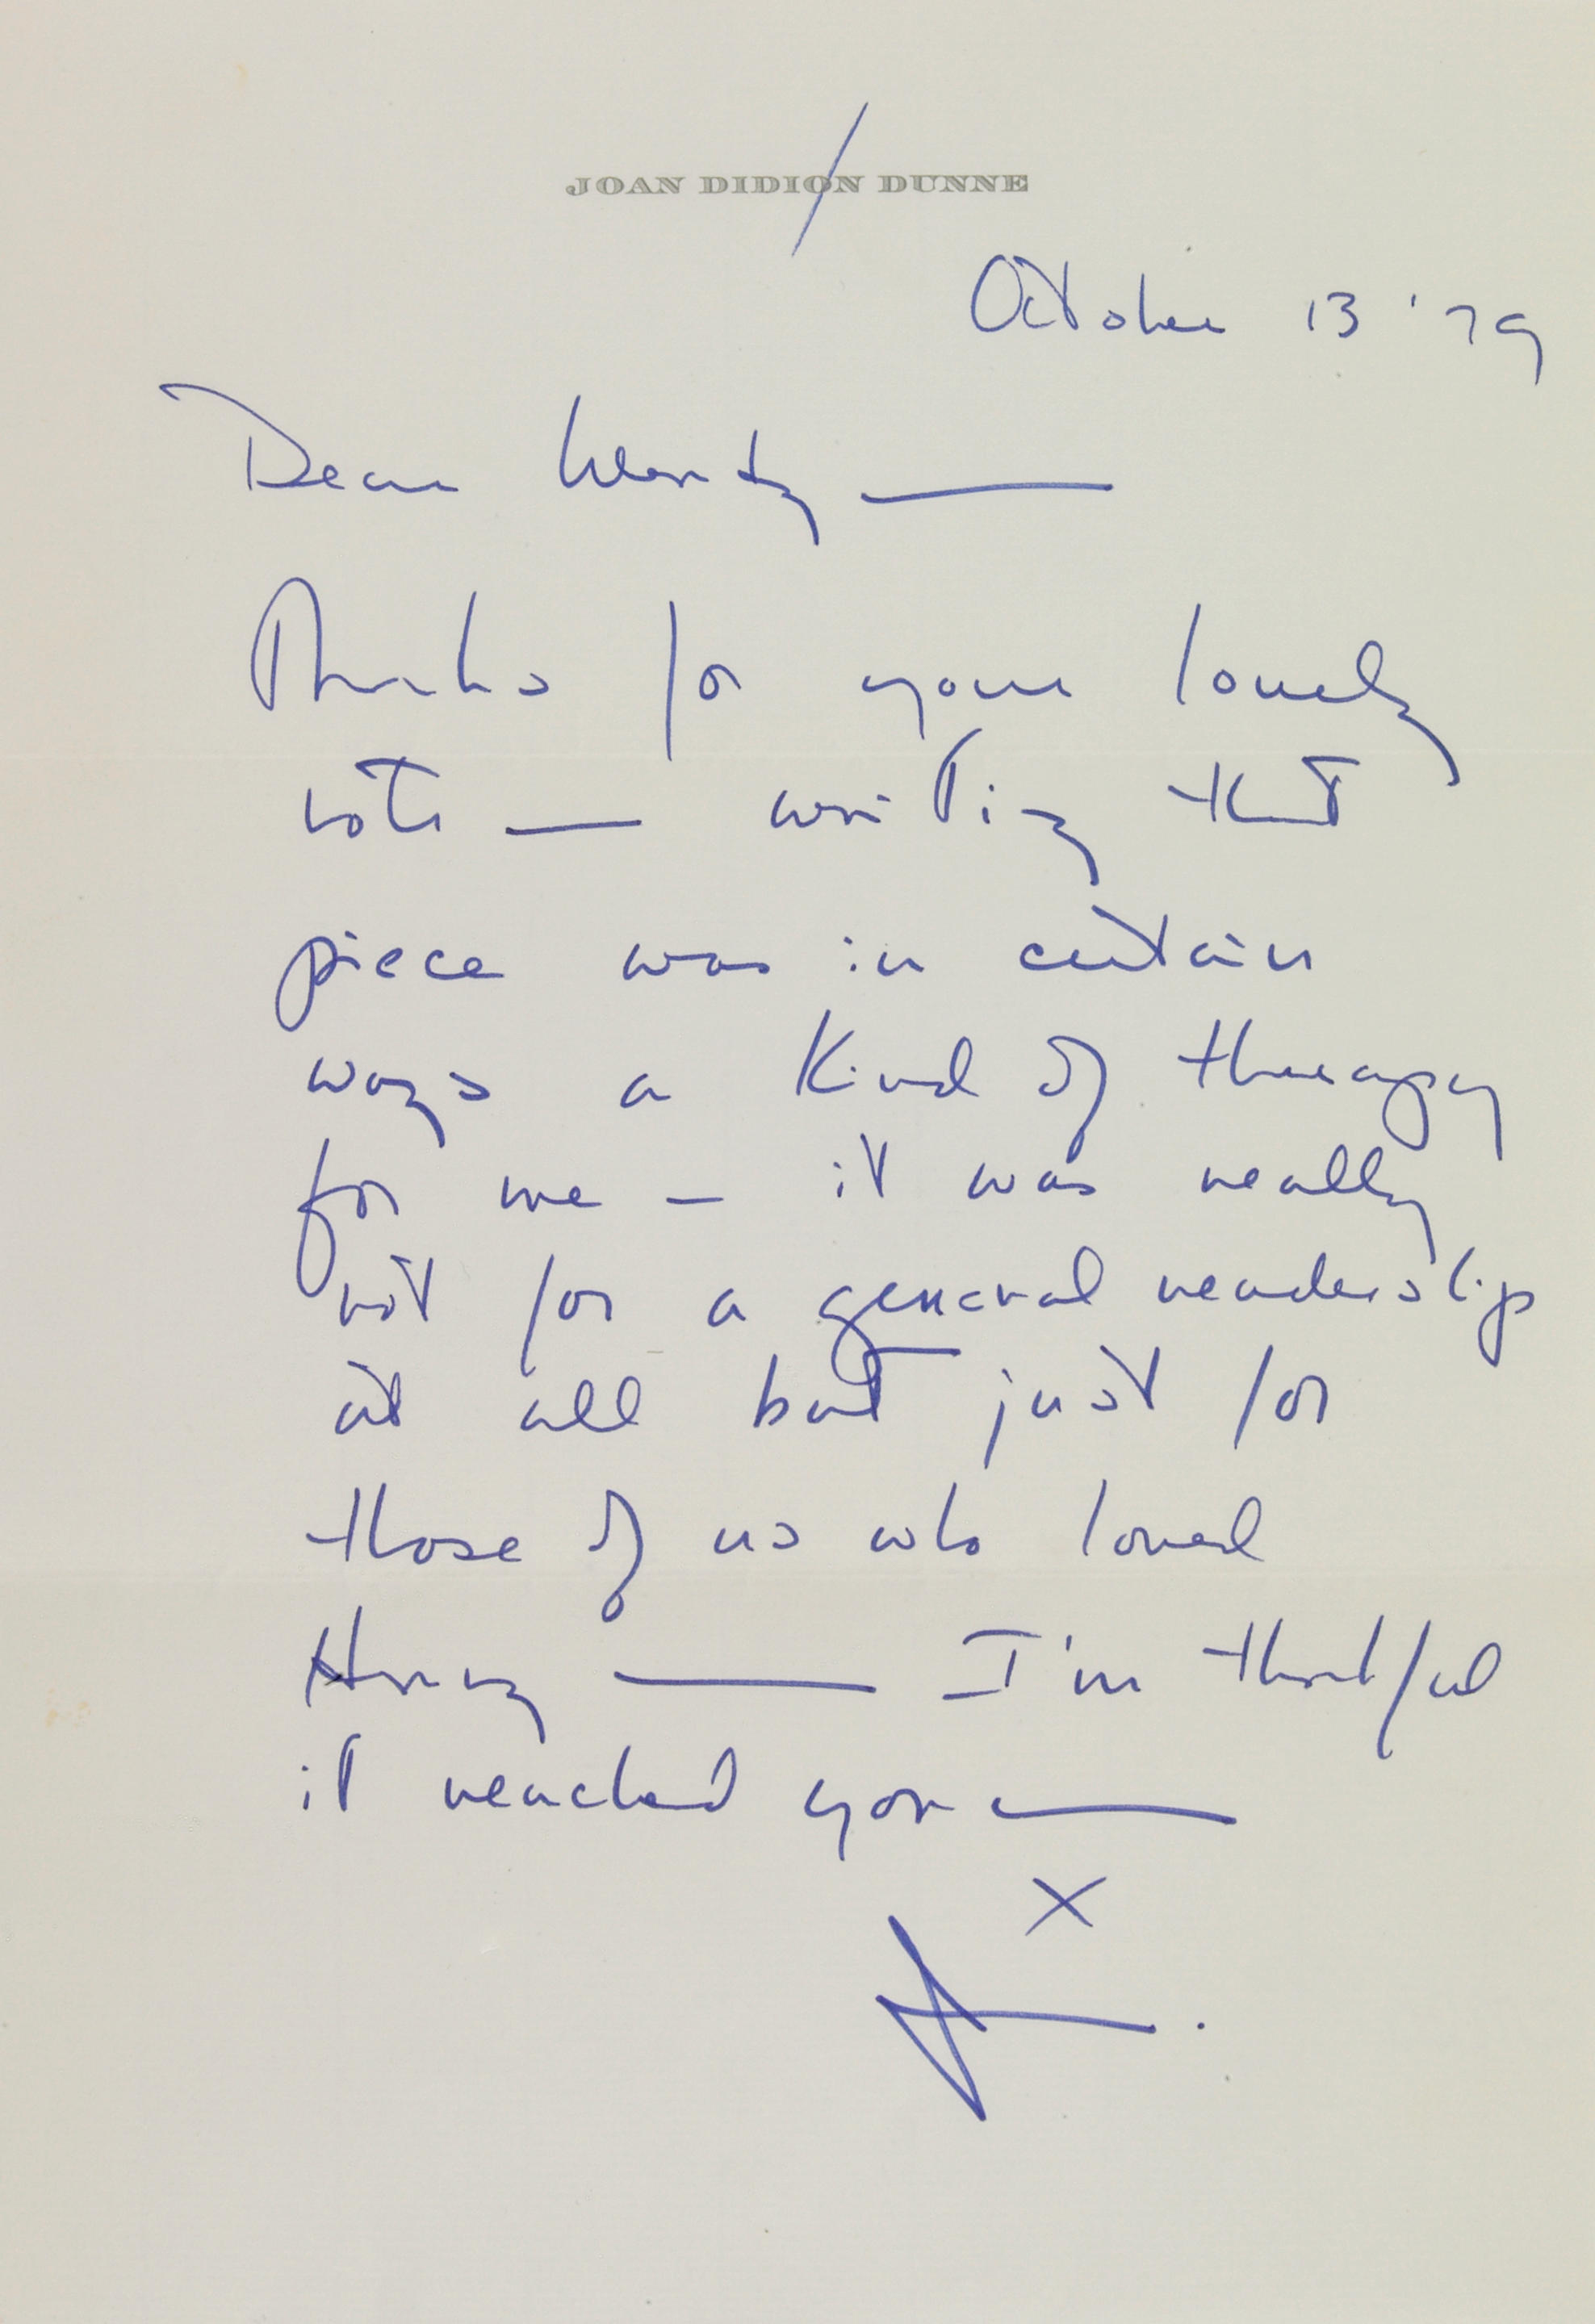 JOAN DIDION DUNNE
October 13 '79
Dear Wendy —
Thanks for your lovely
note — writing that
piece was in certain
ways a kind of therapy
for me — it was really
not for a general readership
at all but just for
those of us who loved
Henry — I'm thankful
it reached you —
x